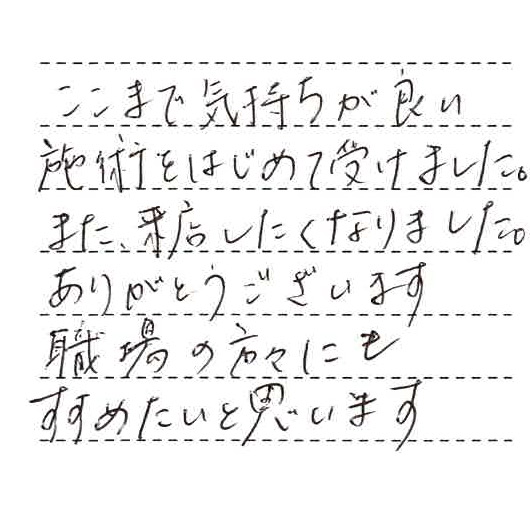 ここまで気持ちが良い
施術をはじめて受けました。
また、来店したくなりました。
ありがとうございます
職場の方々にも
すすめたいと思います